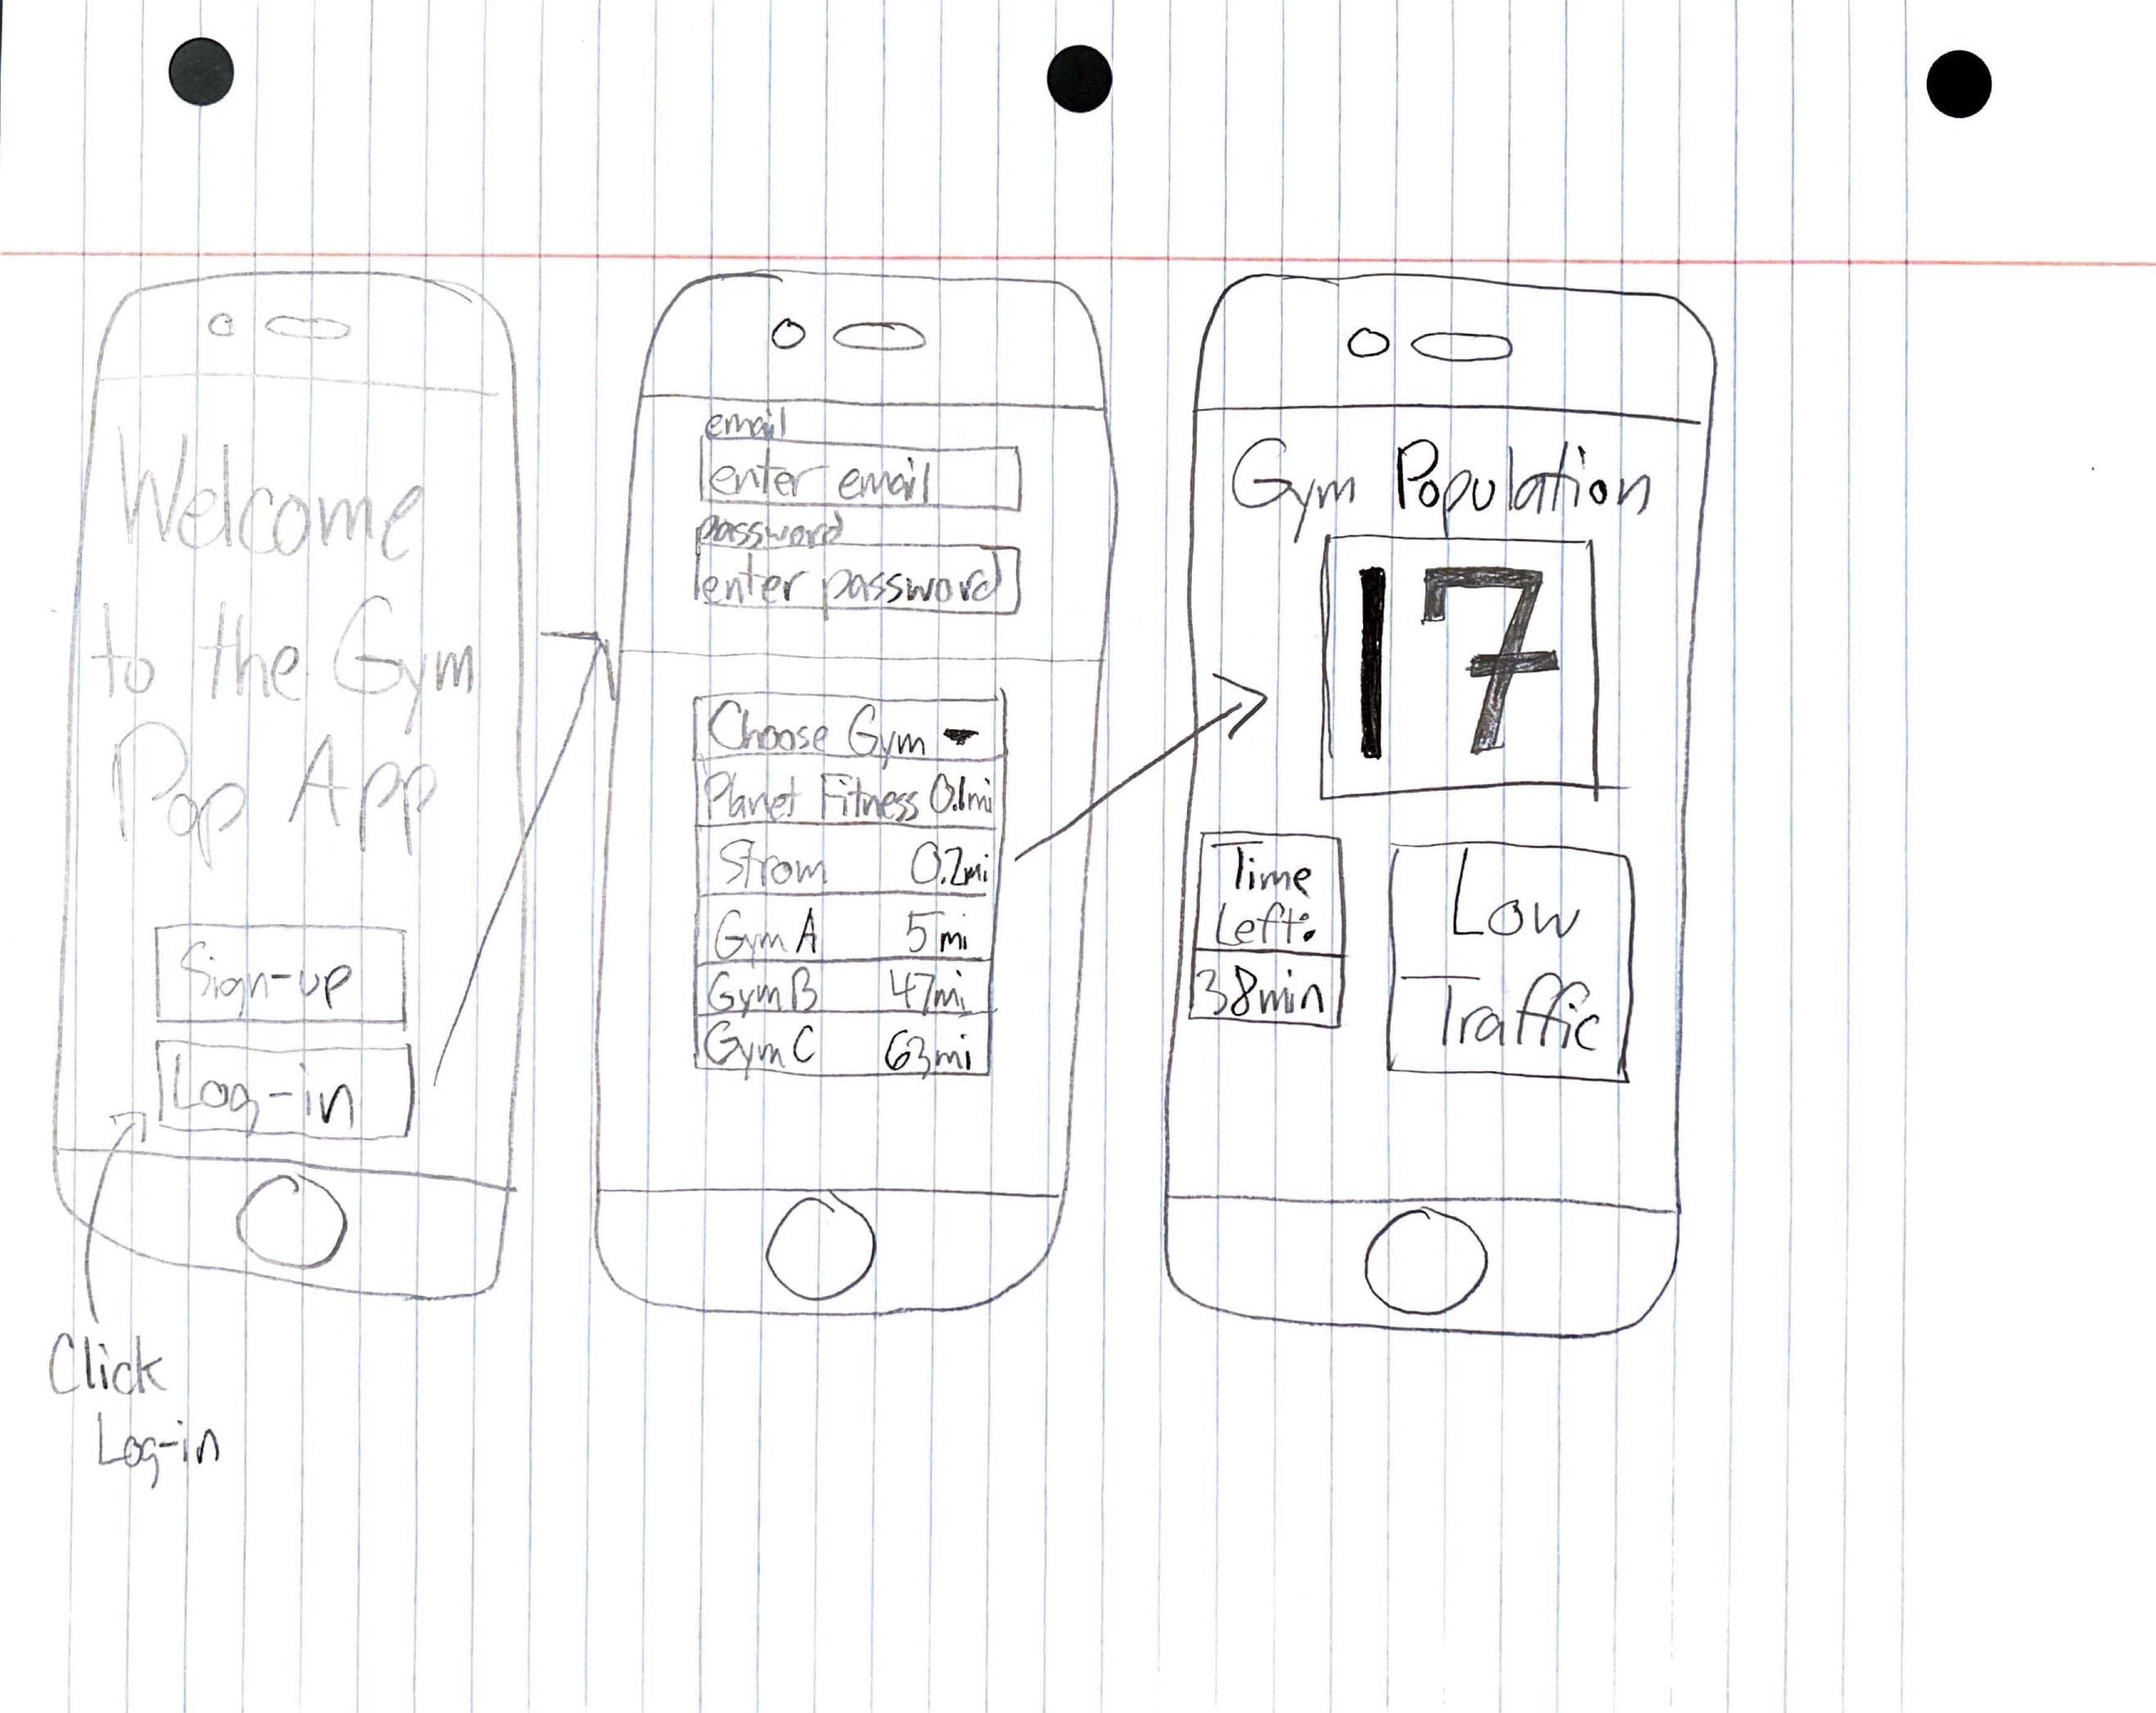 Welcome
to the Gym
Pop App
Sign-up
Log-in
Click
Log-in
email
enter email
password
enter password
Choose Gym
Planet Fitness 0.1mi
Strom 0.2mi
Gym A 5mi
Gym B 47mi
Gym C 63mi
Gym Population
17
Time
Left:
38min
Low
Traffic